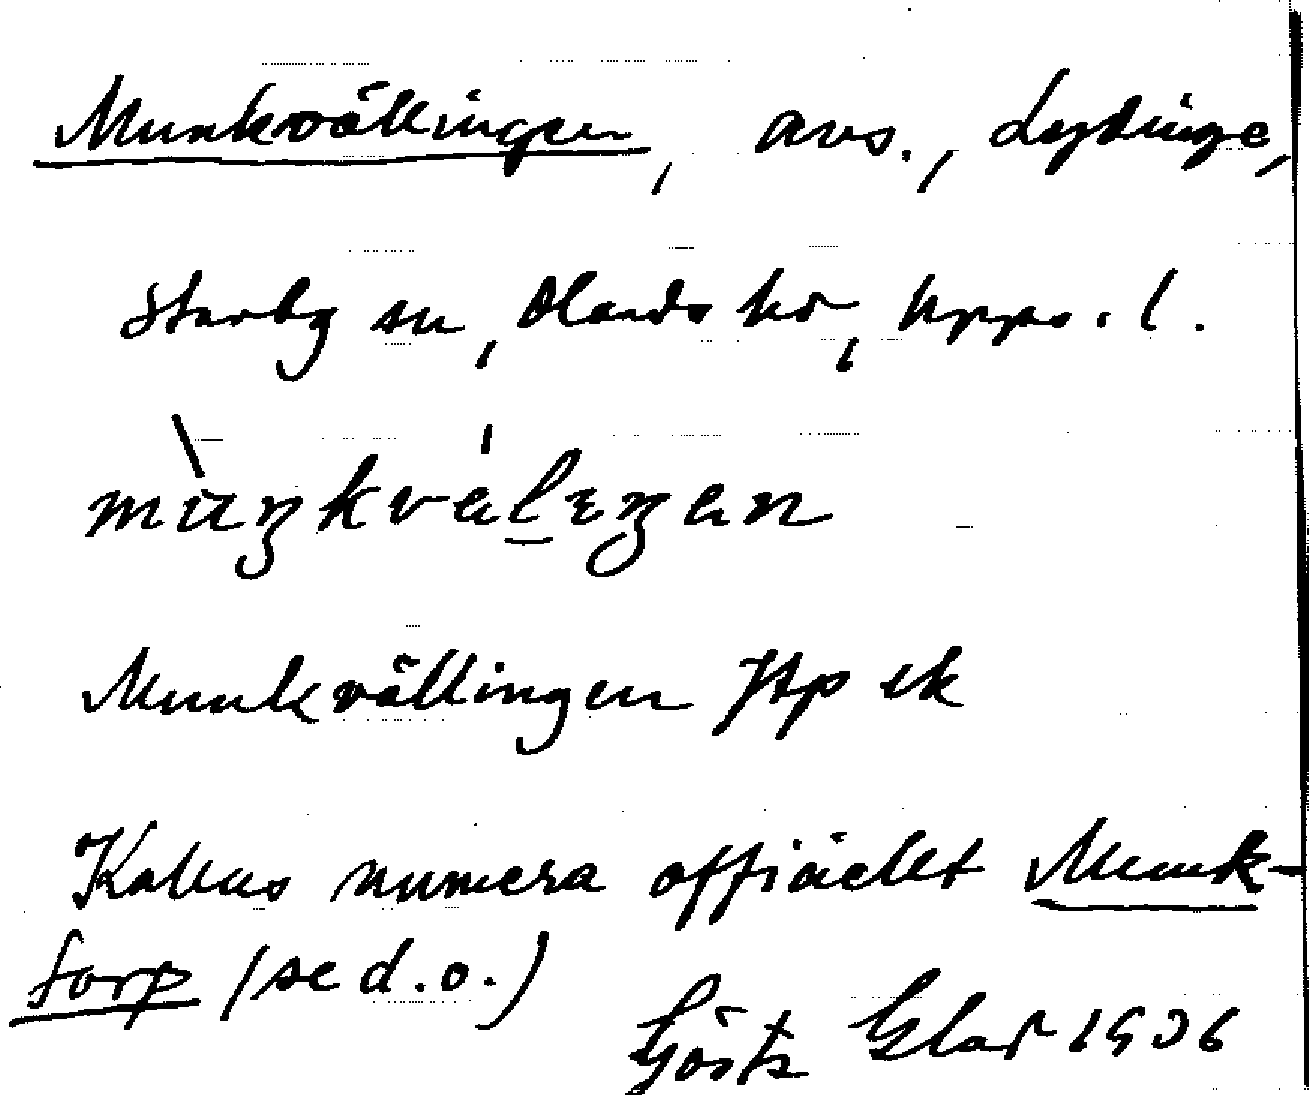 Munkvällingen, avs., Lydinge,
Starby sn, Ölands hd, Upps. l.
mùŋkvälɩŋan
Munkvällingen Htp ek
Kallas numera officiellt Munk-
torp (se d.o.)
Gösta Elar 1936